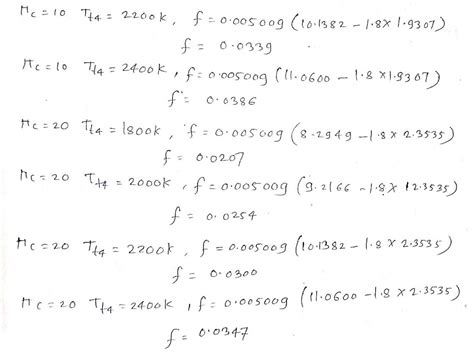 πc=10 Tt4 = 2200k, f = 0.00500g (10.1382 - 1.8x 1.9307)
f = 0.0339
πc=10 Tt4 = 2400k, f = 0.00500g (11.0600 - 1.8 x1.9307)
f = 0.0386
πc=20 Tt4 = 1800k, f = 0.00500g (8.2949 - 1.8x 2.3535)
f = 0.0207
πc=20 Tt4 = 2000k, f = 0.00500g (9.2166 - 1.8x 12.3535)
f = 0.0254
πc=20 Tt4 = 2200k, f = 0.00500g (10.1382 - 1.8 x 2.3535)
f = 0.0300
πc=20 Tt4 = 2400k, f = 0.00500g (11.0600 - 1.8 x 2.3535)
f = 0.0347